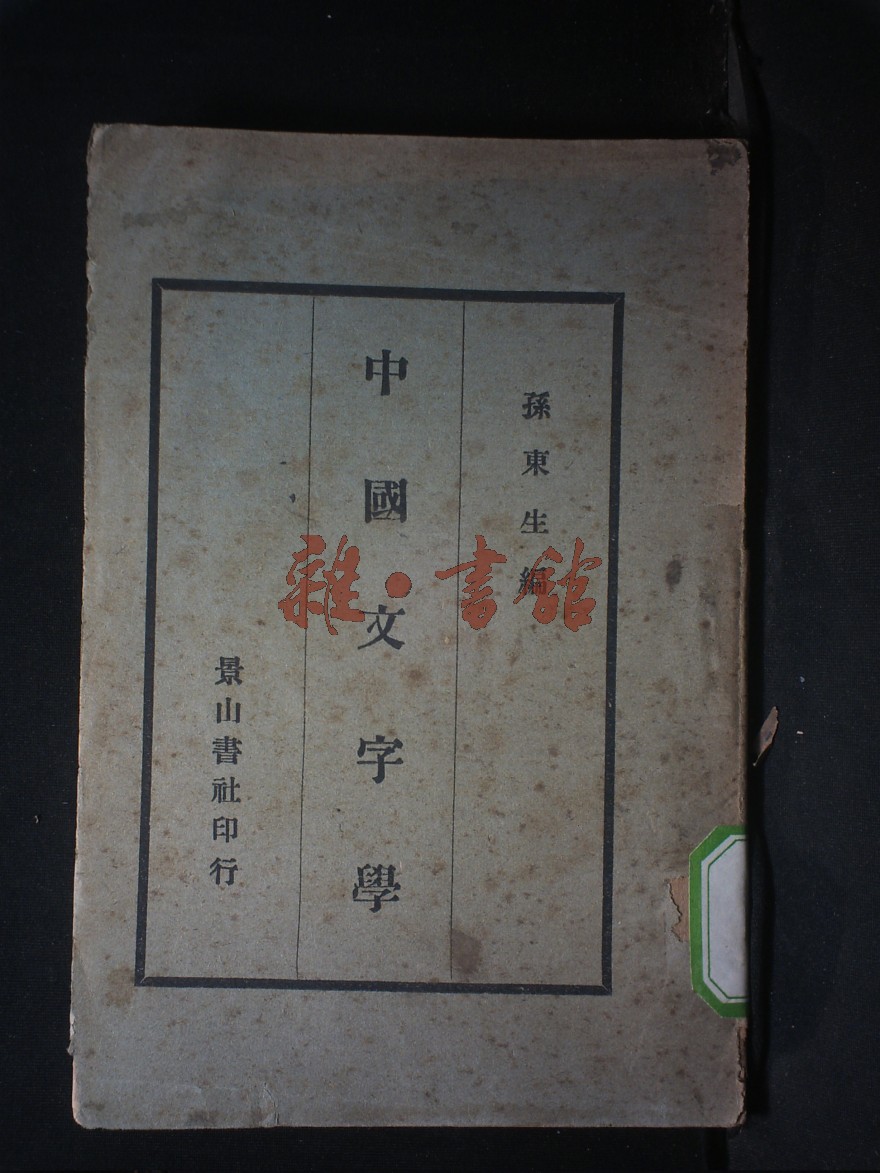 孫東生編
中國文字學
景山書社印行
雜·書館